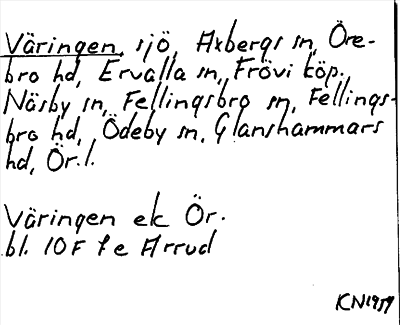 Väringen, sjö, Axbergs sn, Öre-
bro hd, Ervalla sn, Frövi köp.,
Näsby sn, Fellingsbro sn, Fellings-
bro hd, Ödeby sn, Glanshammars
hd, Ör. l.
Väringen ek Ör.
bl. 10F f e Arrud
KN1959